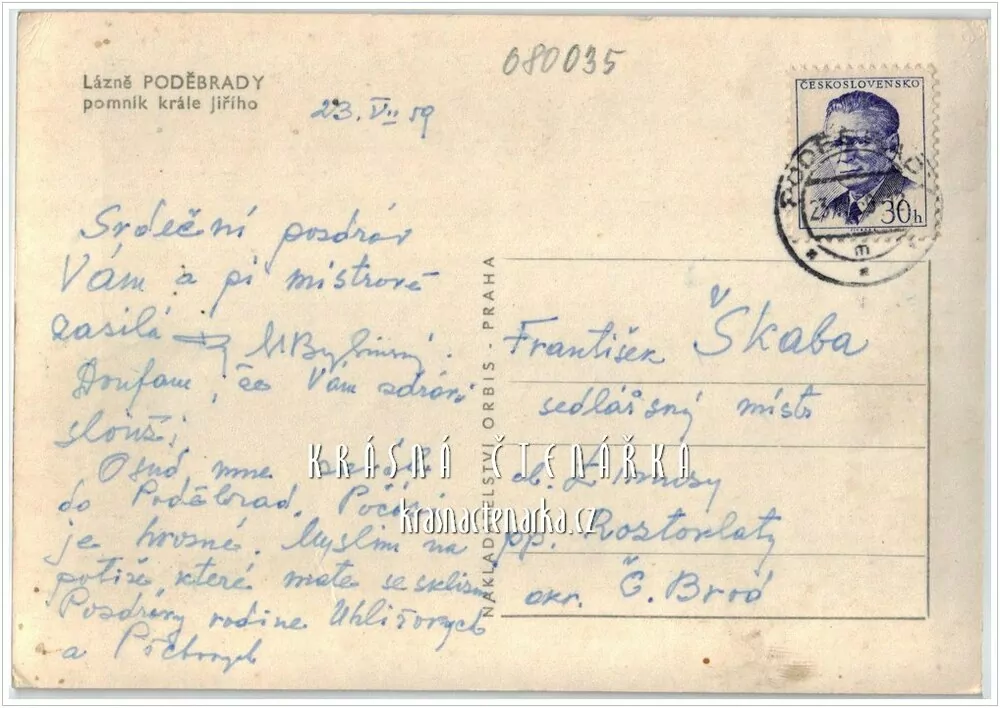 080035
Lázně PODĚBRADY
pomník krále Jiřího
23. VII 59
ČESKOSLOVENSKO
30h
Srdečný pozdrav
Vám a pí mistrové
zasílá
Doufam, že Vám zdraví
slouží
Osud mne
do Poděbrad. Počasí
je hrosné. Myslim na
potíže které mate se sklizní
Pozdravy rodine Uhlířových
a
NAKLADATELSTVÍ ORBIS - PRAHA
František Škaba
sedlářský mistr
ob. Limusy
pp. Rostoklaty
okr. Č. Brod
KRÁSNÁ ČTENÁŘKA
krasnactenarka.cz